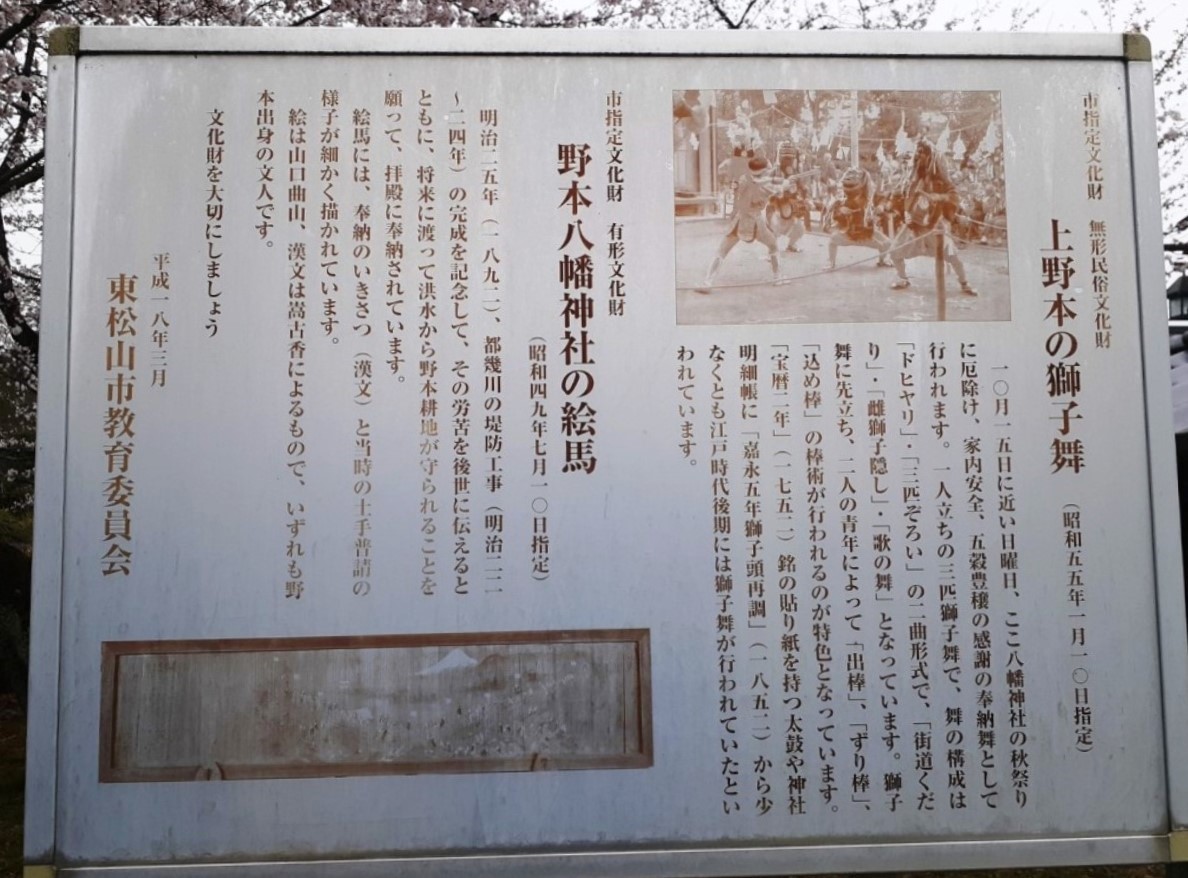 市指定文化財 無形民俗文化財
上野本の獅子舞
(昭和五五年一月一〇日指定)
一〇月一五日に近い日曜日、ここ八幡神社の秋祭り
に厄除け、家内安全、五穀豊穣の感謝の奉納舞として
行われます。一人立ちの三匹獅子舞で、舞の構成は
「ドヒヤリ」・「三匹ぞろい」の二曲形式で、「街道くだ
り」・「雌獅子隠し」・「歌の舞」となっています。獅子
舞に先立ち、二人の青年によって「出棒」、「ずり棒」、
「込め棒」の棒術が行われるのが特色となっています。
「宝暦二年」(一七五二)銘の貼り紙を持つ太鼓や神社
明細帳に「嘉永五年獅子頭再調」(一八五二)から少
なくとも江戸時代後期には獅子舞が行われていたとい
われています。
市指定文化財 有形文化財
野本八幡神社の絵馬
(昭和四九年七月一〇日指定)
明治二五年(一八九二)、都幾川の堤防工事(明治二二
~二四年)の完成を記念して、その労苦を後世に伝えると
ともに、将来に渡って洪水から野本耕地が守られることを
願って、拝殿に奉納されています。
絵馬には、奉納のいきさつ(漢文)と当時の土手普請の
様子が細かく描かれています。
絵は山口曲山、漢文は嵩古香によるもので、いずれも野
本出身の文人です。
文化財を大切にしましょう
平成一八年三月
東松山市教育委員会